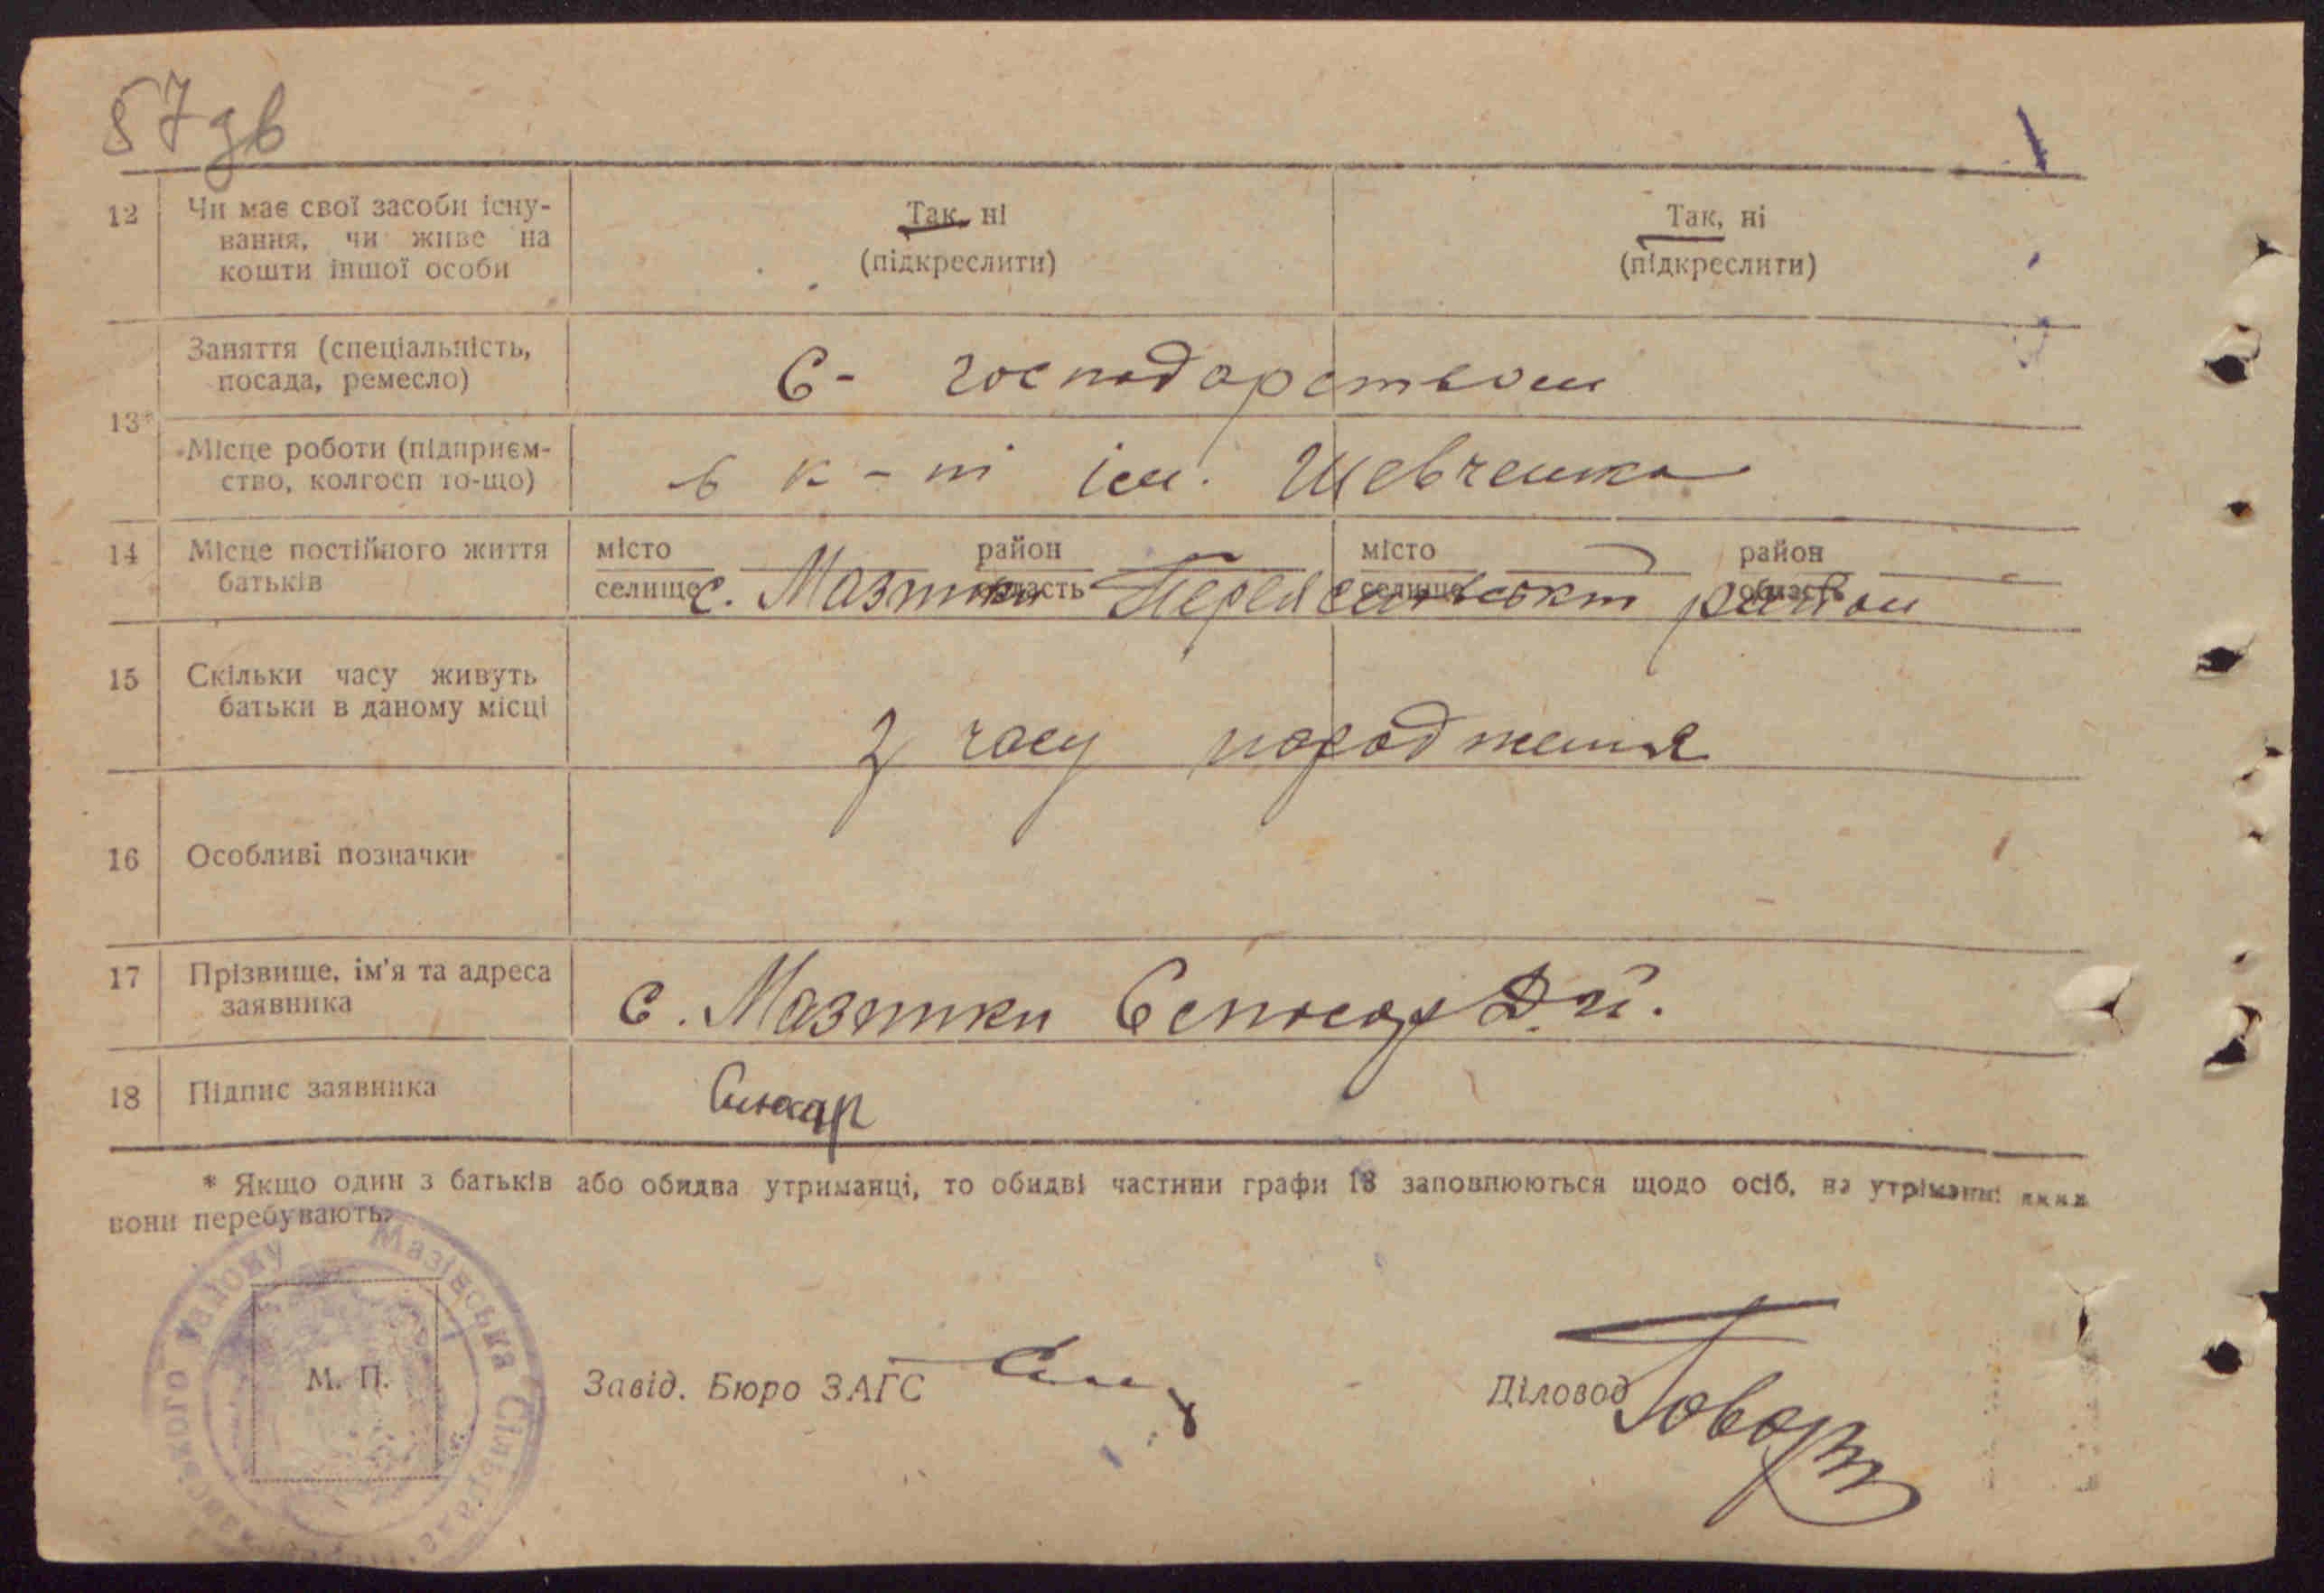 57 зв
12 Чи має свої засоби існу- Так, ні Так, ні
вання, чи живе на
кошти іншої особи (підкреслити) (підкреслити)
Заняття (спеціальність,
посада, ремесло) С- господарством
13*
Місце роботи (підприєм-
ство, колгосп то-що) в к-ті ім. Шевченка
14 Місце постійного життя місто район місто район
батьків селище область селище область
с. Мазінки Переяславський район
15 Скільки часу живуть
батьки в даному місці
з часу народження
16 Особливі позначки
17 Прізвище, ім'я та адреса
заявника с. Мазінки
18 Підпис заявника
* Якщо один з батьків або обидва утриманці, то обидві частини графи 13 заповнюються щодо осіб, на утріманні яких
вони перебувають.
Мазівська Сільрада
району
М. П.
Завід. Бюро ЗАГС
Діловод